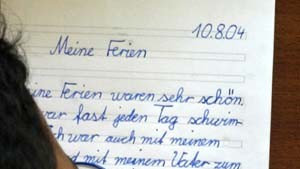 10.8.04
Meine Ferien
Ferien waren sehr schön.
fast jeden Tag schwim-
war auch mit meinem
mit meinem Vater zum